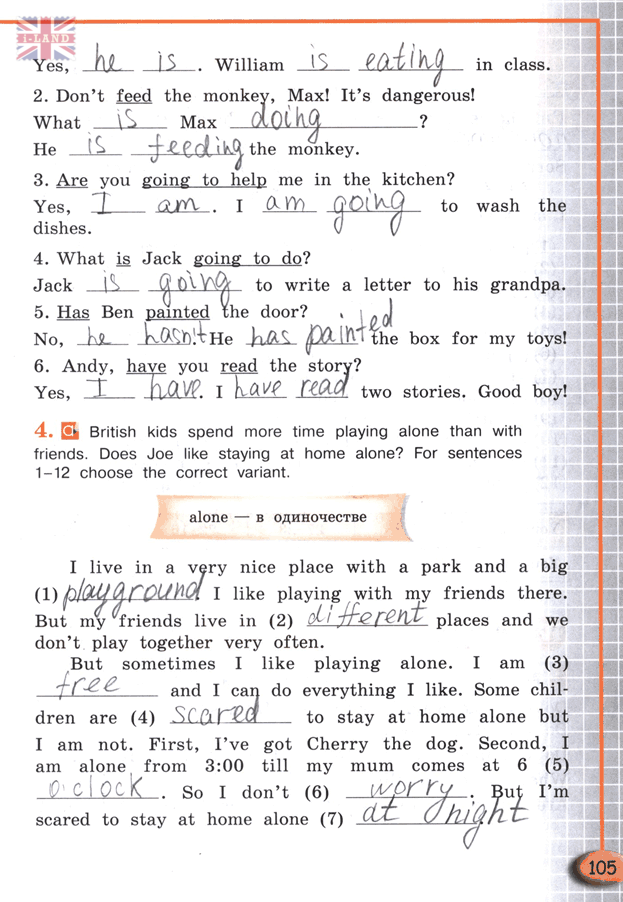 I-LAND
Yes, he is. William is eating in class.
2. Don't feed the monkey, Max! It's dangerous!
What is Max doing ?
He is feeding the monkey.
3. Are you going to help me in the kitchen?
Yes, I am. I am going to wash the
dishes.
4. What is Jack going to do?
Jack is going to write a letter to his grandpa.
5. Has Ben painted the door?
No, he hasn't. He has painted the box for my toys!
6. Andy, have you read the story?
Yes, I have. I have read two stories. Good boy!
4. British kids spend more time playing alone than with
friends. Does Joe like staying at home alone? For sentences
1–12 choose the correct variant.
alone — в одиночестве
I live in a very nice place with a park and a big
(1) playground I like playing with my friends there.
But my friends live in (2) different places and we
don't play together very often.
But sometimes I like playing alone. I am (3)
free and I can do everything I like. Some chil-
dren are (4) scared to stay at home alone but
I am not. First, I've got Cherry the dog. Second, I
am alone from 3:00 till my mum comes at 6 (5)
o'clock. So I don't (6) worry. But I'm
scared to stay at home alone (7) at night
105